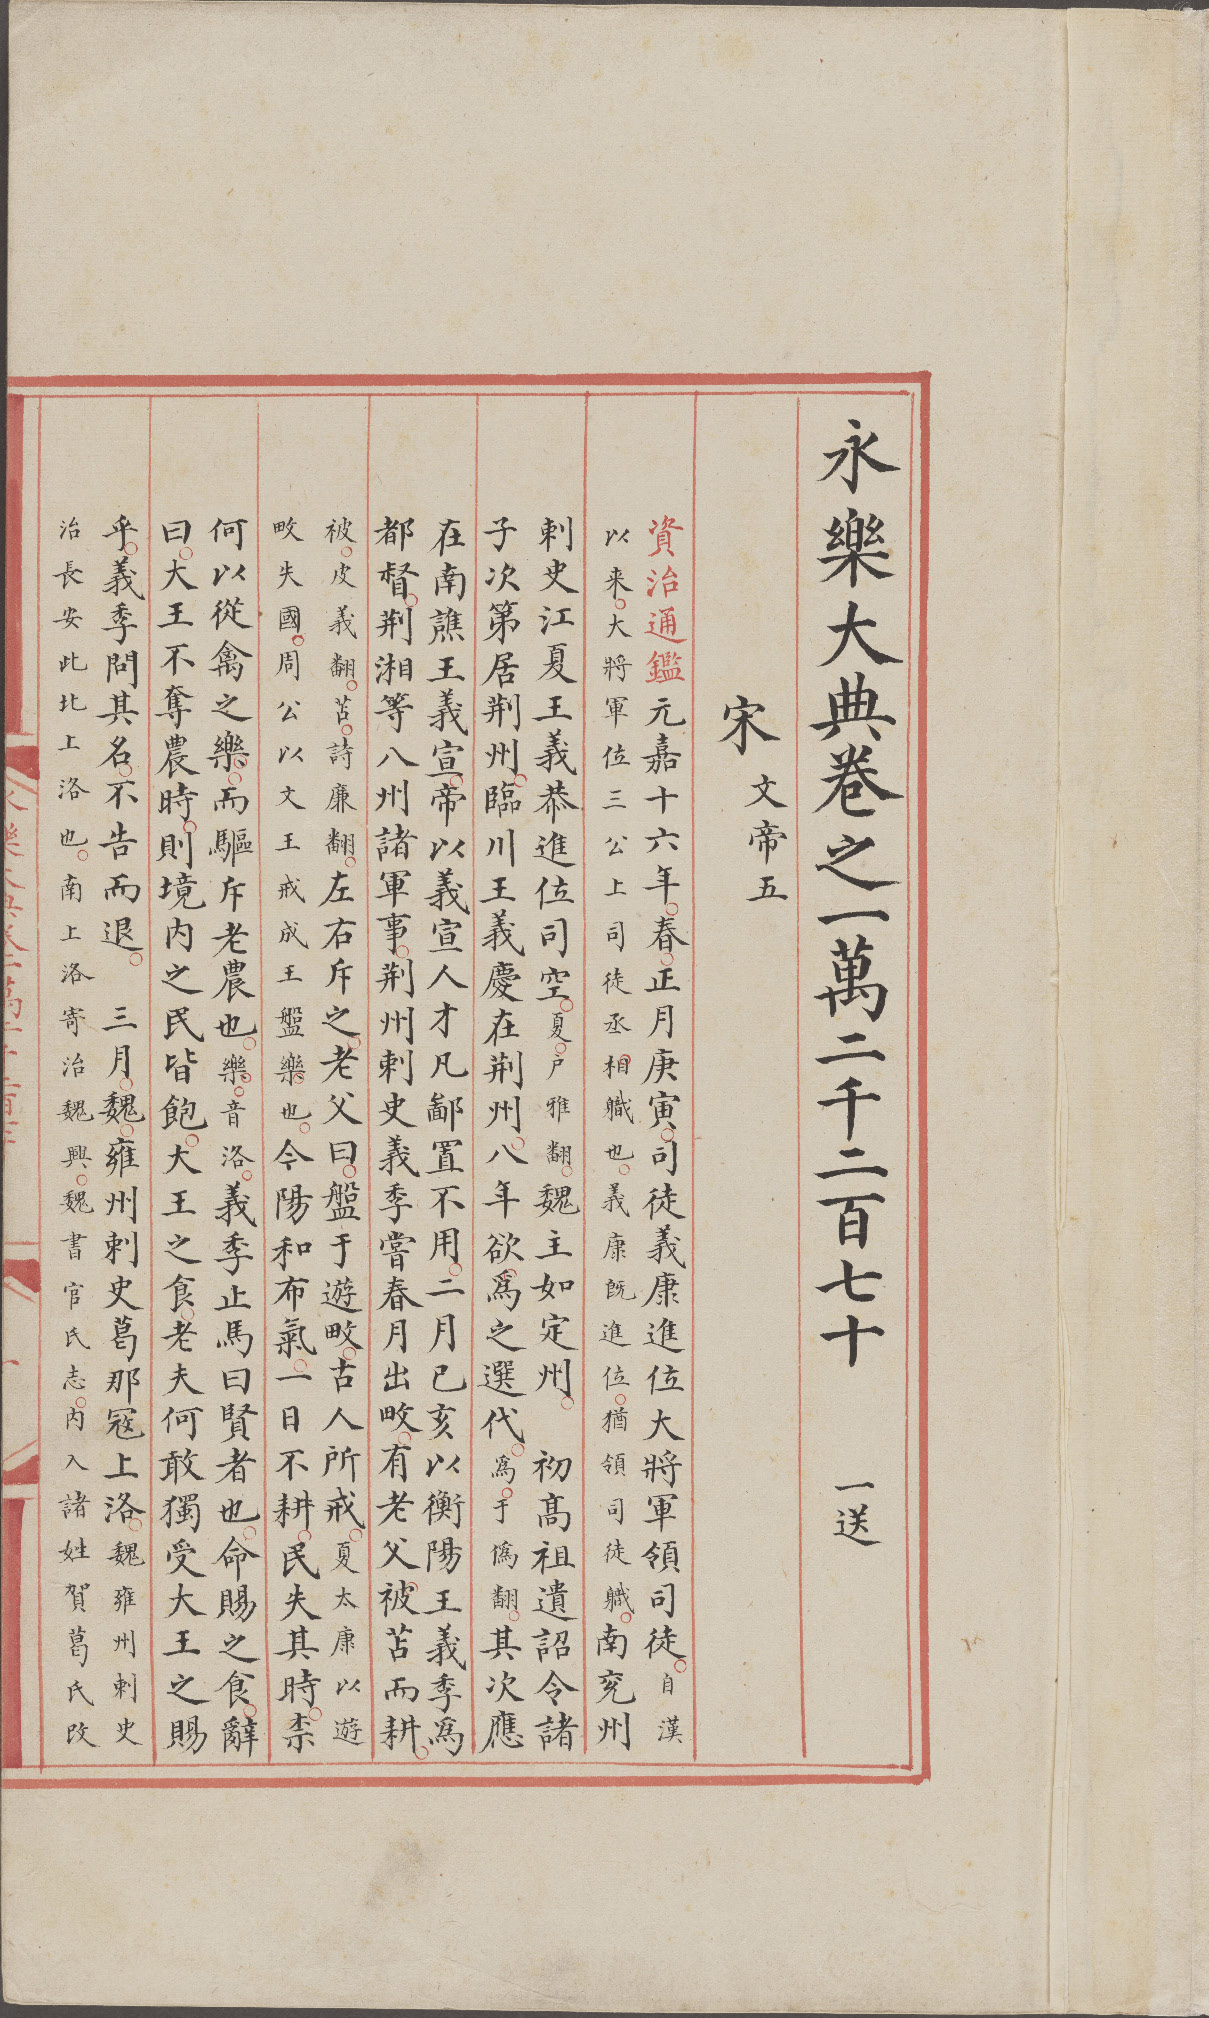 永樂大典卷之一萬二千二百七十 一送
宋 文帝五
資治通鑑元嘉十六年春正月庚寅司徒義康進位大將軍領司徒自漢
以来大將軍位三公上司徒丞相職也義康旣進位猶領司徒職南兖州
刺史江夏王義恭進位司空夏戶雅翻魏主如定州 初髙祖遺詔令諸
子次第居荆州臨川王義慶在荆州八年欲爲之選代爲于僞翻其次應
在南譙王義宣帝以義宣人才凡鄙置不用二月己亥以衡陽王義季爲
都督荆湘等八州諸軍事荆州刺史義季嘗春月出畋有老父被苫而耕
被皮義翻苫詩廉翻左右斥之老父曰盤于遊畋古人所戒夏太康以遊
畋失國周公以文王戒成王盤樂也今陽和布氣一日不耕民失其時柰
何以從禽之樂而驅斥老農也樂音洛義季止馬曰賢者也命賜之食辭
曰大王不奪農時則境内之民皆飽大王之食老夫何敢獨受大王之賜
乎義季問其名不告而退 三月魏雍州刺史葛那冦上洛魏雍州刺史
治長安此北上洛也南上洛寄治魏興魏書官氏志内入諸姓賀葛氏改